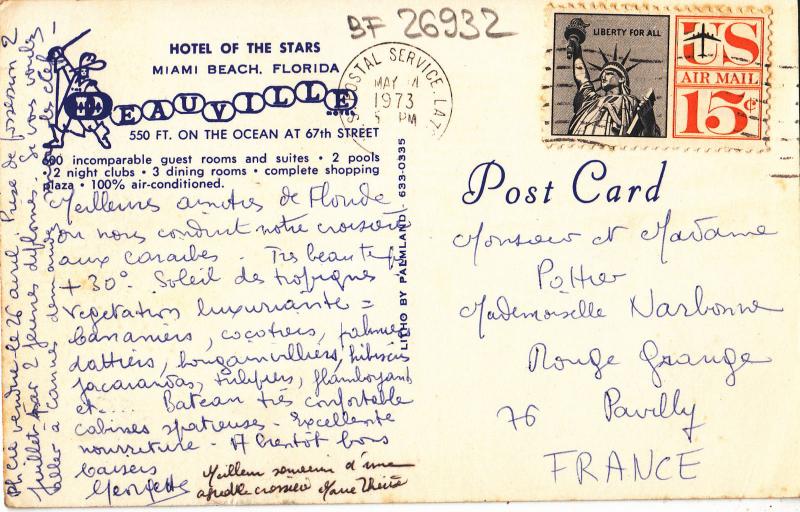 BF 26932
HOTEL OF THE STARS
MIAMI BEACH, FLORIDA
DEAUVILLE
HOTEL
550 FT. ON THE OCEAN AT 67th STREET
600 incomparable guest rooms and suites • 2 pools
• 2 night clubs • 3 dining rooms • complete shopping
plaza • 100% air-conditioned.
POSTAL SERVICE, LA
MAY
1973
PM
LIBERTY FOR ALL
US
AIR MAIL
15¢
Post Card
LITHO BY PALMLAND 633-0335
Meilleures amitiés de Floride
où nous conduit notre croisière
aux caraïbes - Très beau temps
+ 30°. Soleil des tropiques
végétation luxuriante =
bananiers, cocotiers, palmiers
dattiers, bougainvilliers, hibiscus
jacarandas, tulipiers, flamboyants
et.... Bateau très confortable
cabines spacieuses - Excellente
nourriture - A bientôt bons
baisers
Georgette
Meilleur souvenir d'une
agréable croisière Marie Thérèse
Phcie vendue le 26 avril. Prise de possession 2
juillet par 2 jeunes diplômés. Si vous voulez
aller à Cannes demandez les clefs -
Monsieur et Madame
Pottier
Mademoiselle Narbonne
Rouge Grange
76 Pavilly
FRANCE